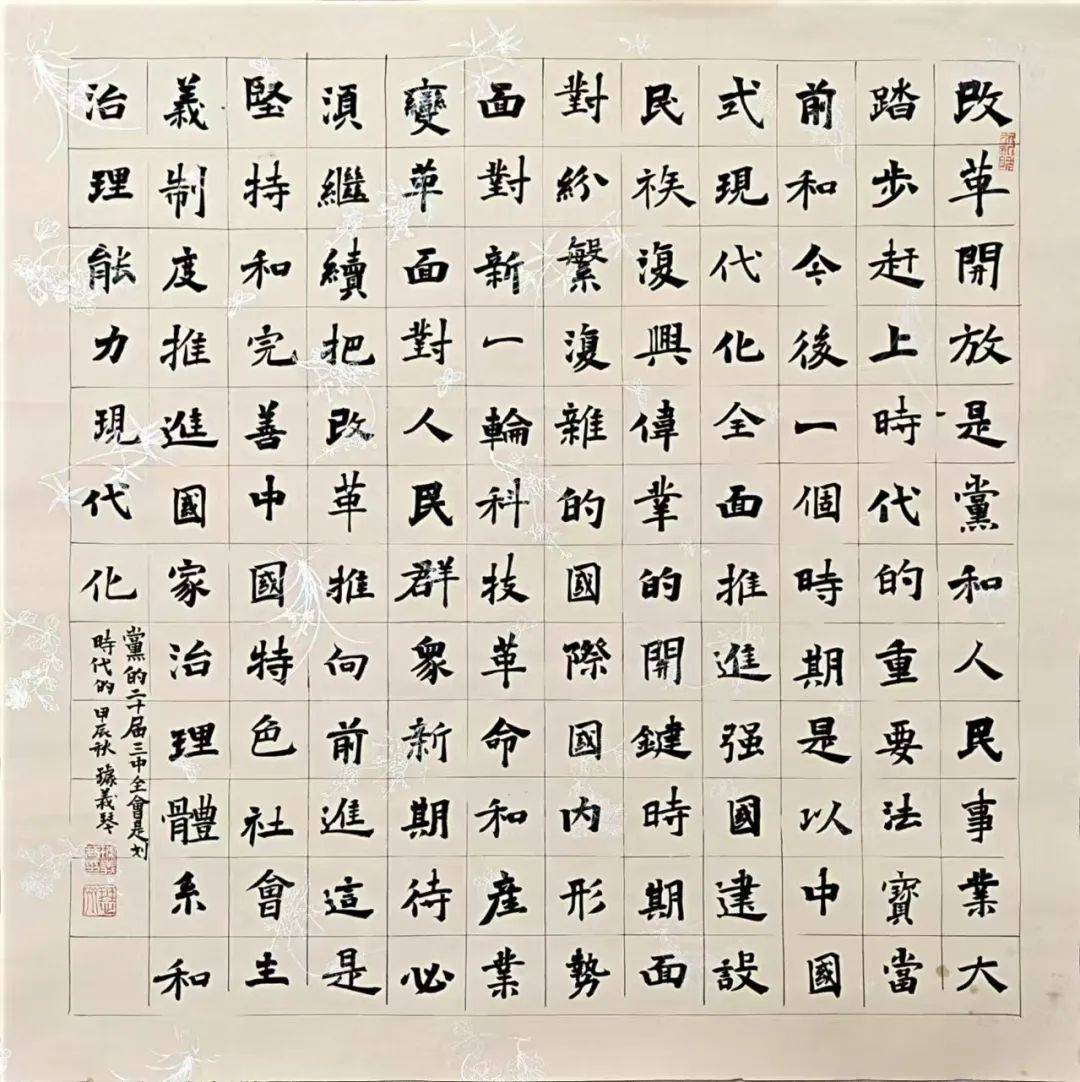 改革開放是黨和人民事業大
踏步赶上時代的重要法寶當
前和今後一個時期是以中國
式現代化全面推進强國建設
民族復興偉業的開鍵時期面
對紛繁復雜的國際國内形勢
面對新一輪科技革命和産業
變革面對人民群衆新期待必
須繼續把改革推向前進這是
堅持和完善中國特色社會主
義制度推進國家治理體系和
治理能力現代化
黨的二十届三中全會是划
時代的 甲辰秋 璩義琴